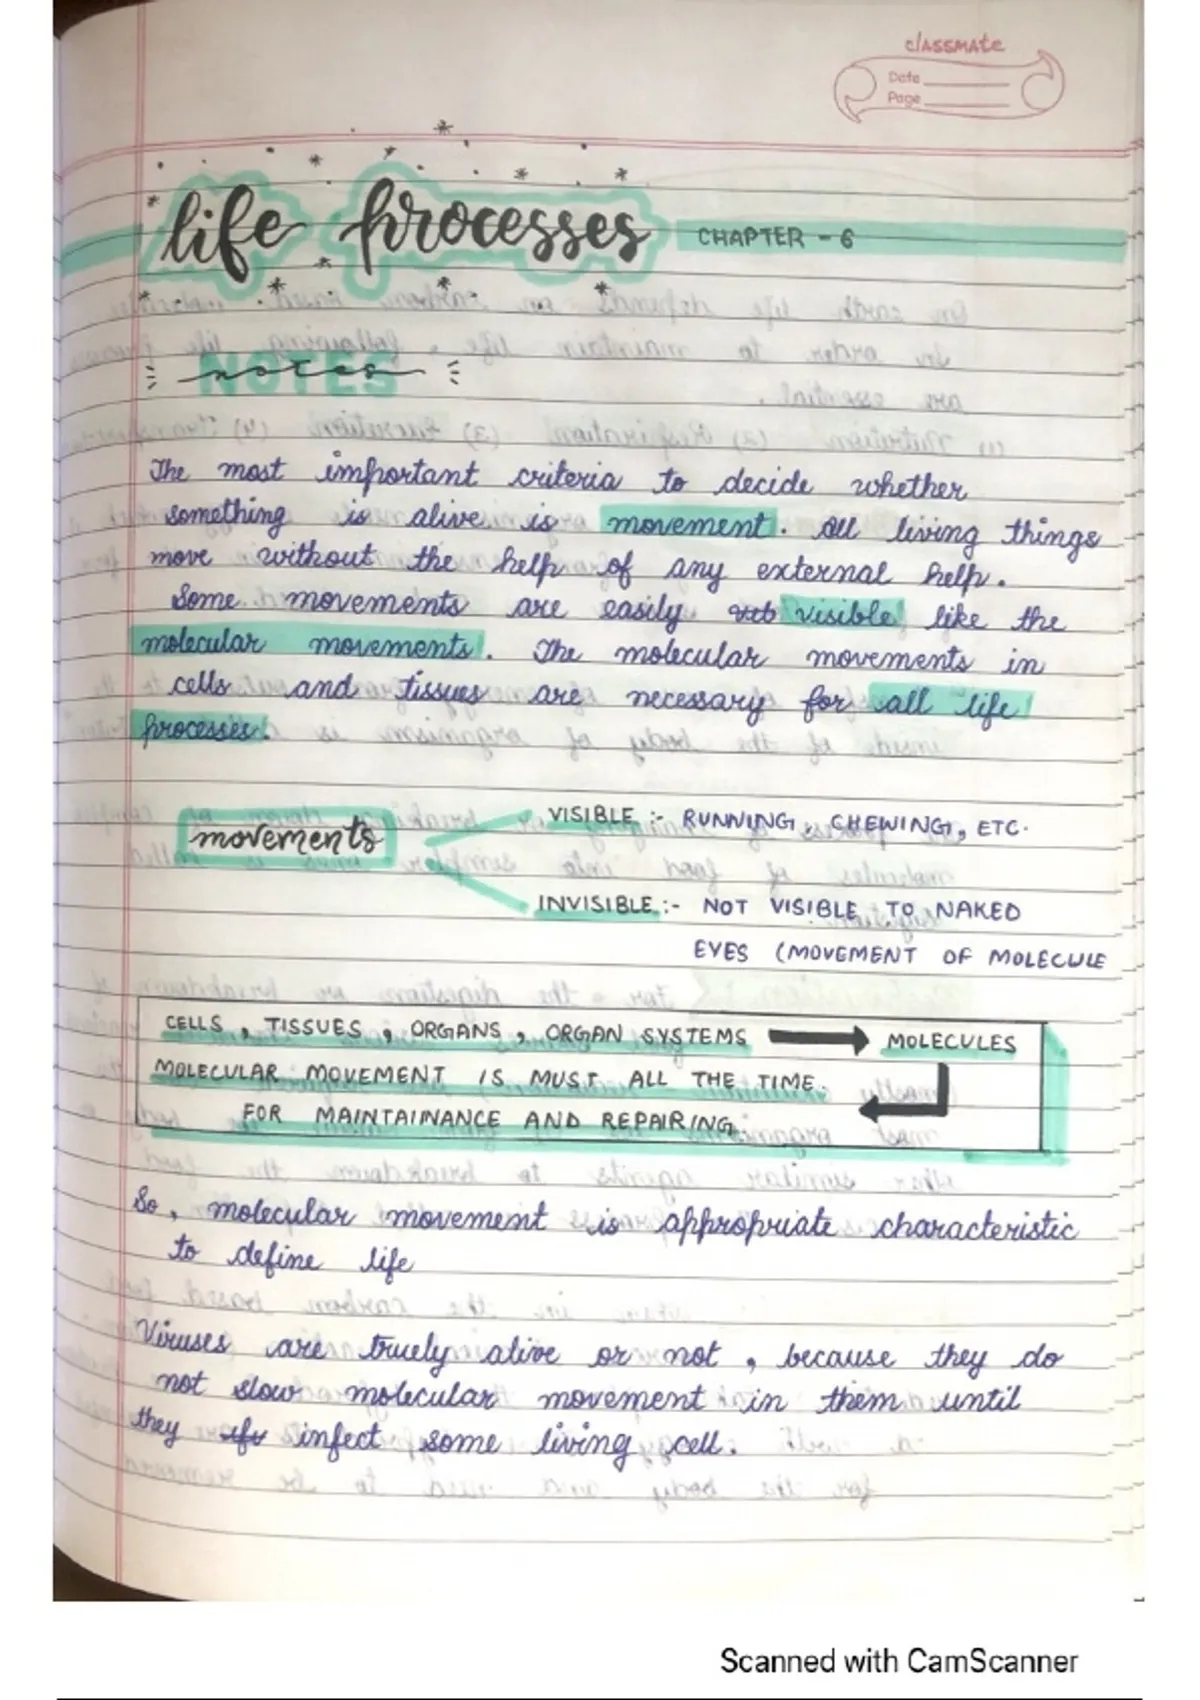 classmate
Date
Page
life processes CHAPTER - 6
NOTES
notes
The most important criteria to decide whether
something is alive is movement. All living things
move without the help of any external help.
Some movements are easily visible like the
molecular movements. The molecular movements in
cells and tissues are necessary for all life
processes.
movements
VISIBLE :- RUNNING, CHEWING, ETC.
INVISIBLE :- NOT VISIBLE TO NAKED
EYES (MOVEMENT OF MOLECULE
CELLS, TISSUES, ORGANS, ORGAN SYSTEMS → MOLECULES
MOLECULAR MOVEMENT IS MUST ALL THE TIME.
FOR MAINTAINANCE AND REPAIRING.
So, molecular movement is appropriate characteristic
to define life
Viruses are truely alive or not, because they do
not slow molecular movement in them until
they infect some living cell.
Scanned with CamScanner